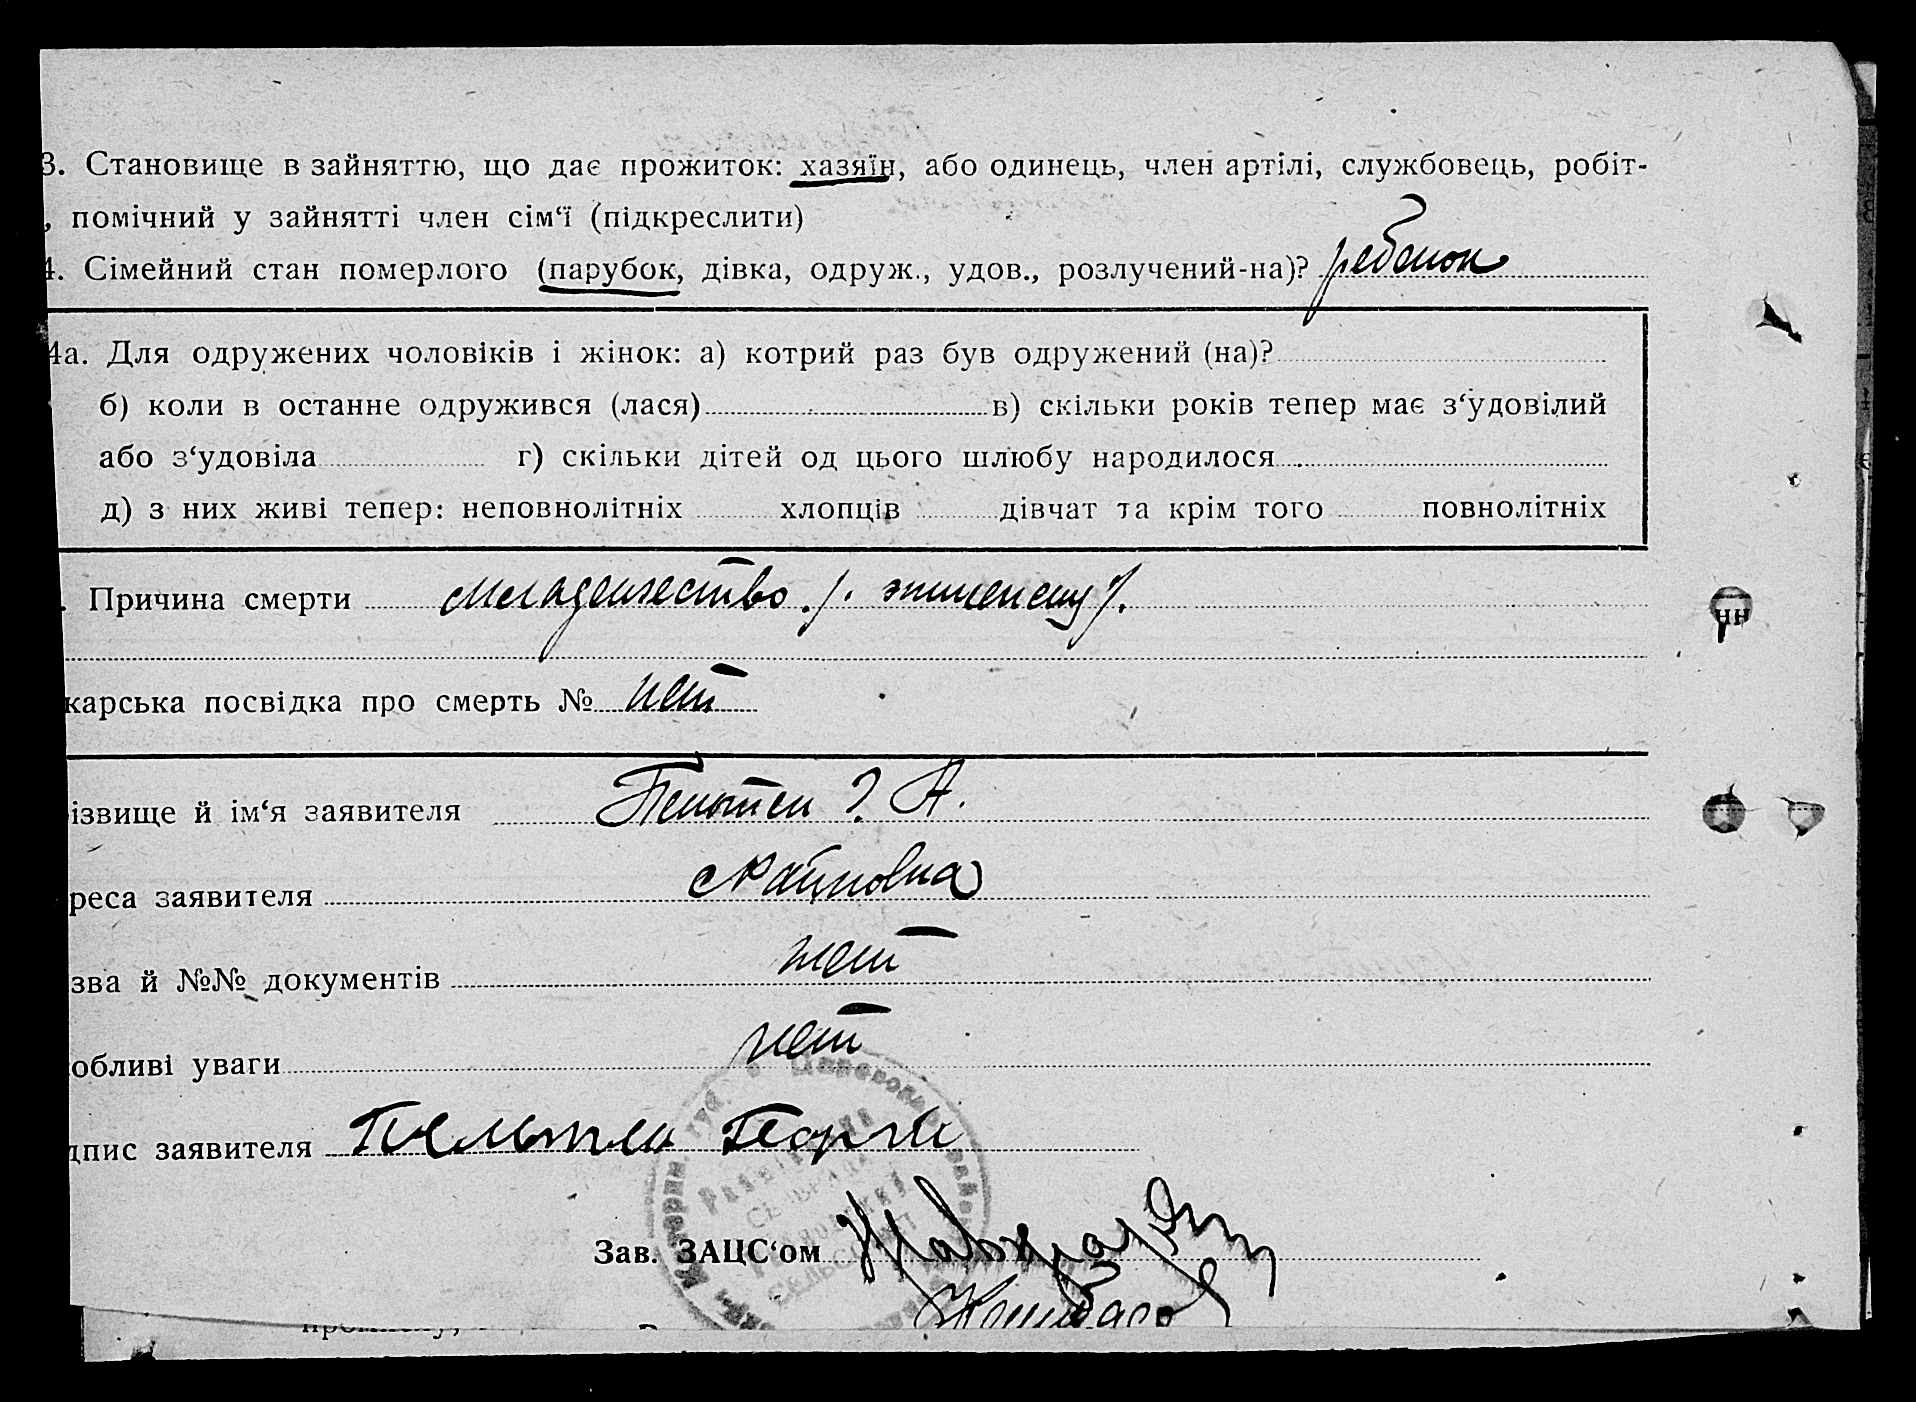 3. Становище в зайняттю, що дає прожиток: хазяїн, або одинець, член артілі, службовець, робіт-
, помічний у зайнятті член сім‘ї (підкреслити)
4. Сімейний стан померлого (парубок, дівка, одруж., удов., розлучений-на)? ребенок
4а. Для одружених чоловіків і жінок: а) котрий раз був одружений (на)?
б) коли в останне одружився (лася) в) скільки років тепер має з‘удовілий
або з‘удовіла г) скільки дітей од цього шлюбу народилося
д) з них живі тепер: неповнолітніх хлопців дівчат та крім того повнолітніх
. Причина смерти младенчество
карська посвідка про смерть № нет
ізвище й ім‘я заявителя
реса заявителя
зва й №№ документів нет
обливі уваги нет
дпис заявителя
Зав. ЗАЦС‘ом